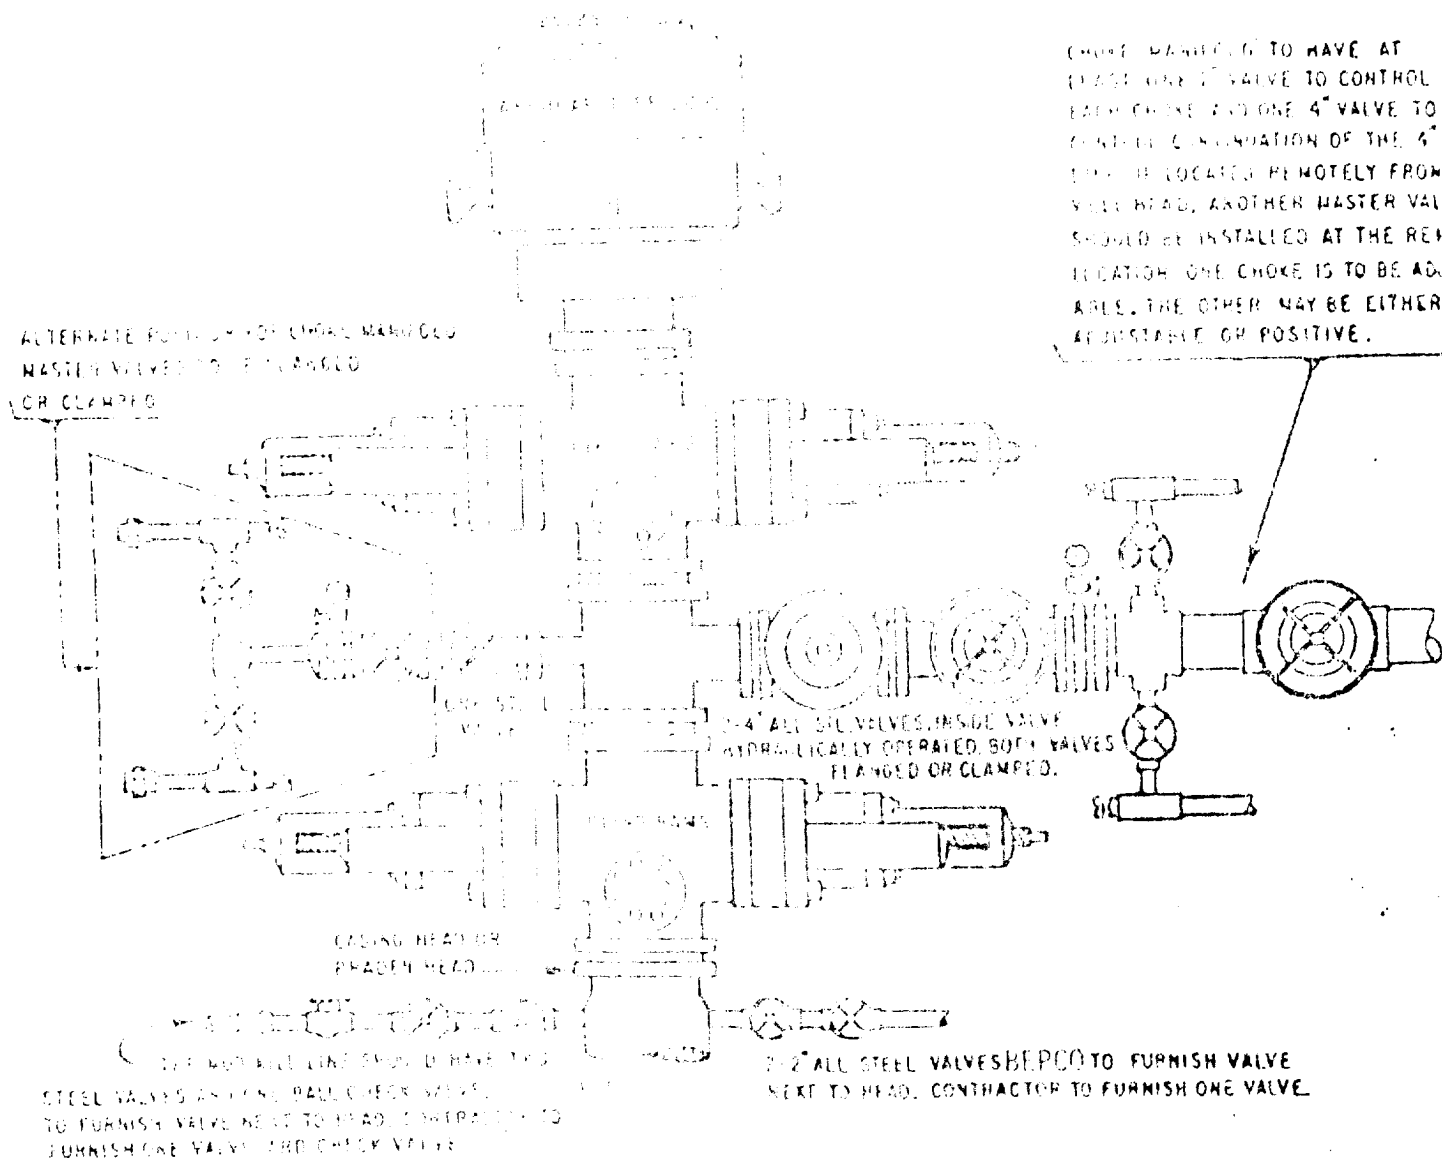 CHOKE MANIFOLD TO HAVE AT
LEAST ONE 2" VALVE TO CONTROL
EACH CHOKE AND ONE 4" VALVE TO
CONTROL CONTINUATION OF THE 4"
LOCATED REMOTELY FROM
WELL HEAD, ANOTHER MASTER VAL
SHOULD BE INSTALLED AT THE REM
LOCATION ONE CHOKE IS TO BE ADJ
ABLE. THE OTHER MAY BE EITHER
ADJUSTABLE OR POSITIVE.
ALTERNATE POSITION FOR CHOKE MANIFOLD
MASTER VALVES TO BE FLANGED
OR CLAMPED
ONE STEEL
VALVE
2-4" ALL STL. VALVES, INSIDE VALVE
HYDRAULICALLY OPERATED. BOTH VALVES
FLANGED OR CLAMPED.
BLIND RAMS
CASING HEAD OR
BRADEN HEAD
KILL LINE SHOULD HAVE TWO
STEEL VALVES AND ONE BALL CHECK VALVE.
TO FURNISH VALVE NEXT TO HEAD. CONTRACTOR TO
FURNISH ONE VALVE AND CHECK VALVE
2-2" ALL STEEL VALVES BEPCO TO FURNISH VALVE
NEXT TO HEAD. CONTRACTOR TO FURNISH ONE VALVE.